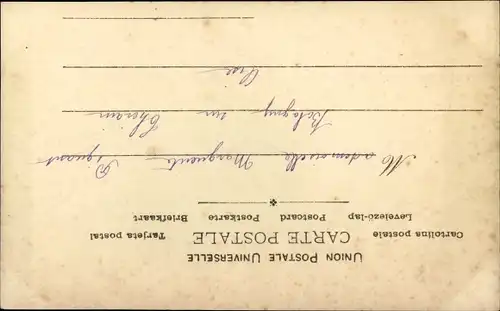 UNION POSTALE UNIVERSELLE
CARTE POSTALE
Cartolina postale Tarjeta postal
Levelező-lap Postcard Postkarte Briefkaart
Mademoiselle Marguerite
Balagny sur Thérain
Oise